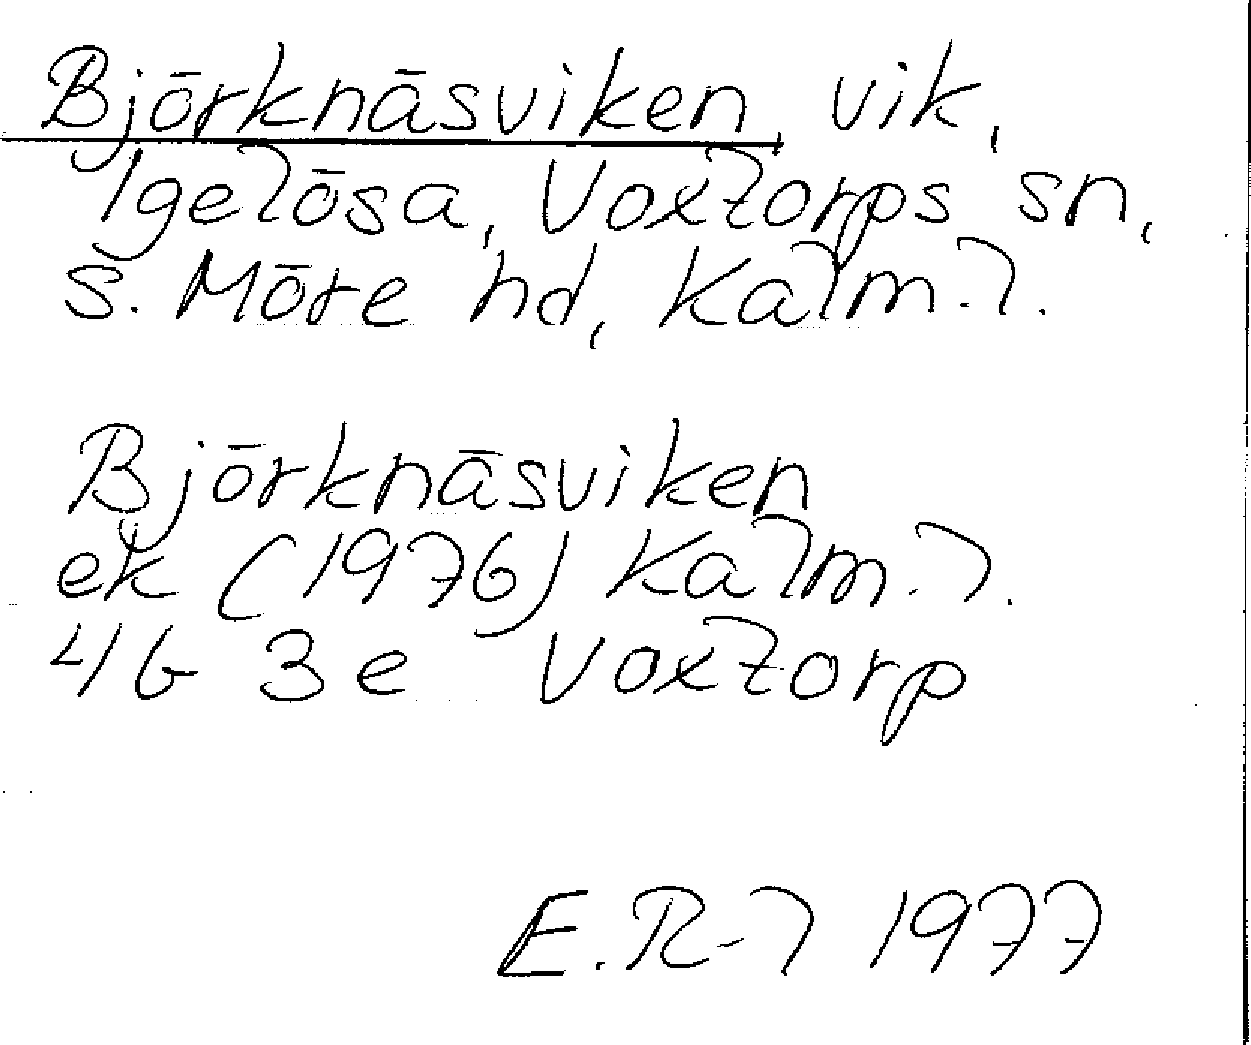 Björknäsviken, vik,
Igelösa, Voxtorps sn,
S. Möre hd, Kalm. l.
Björknäsviken
ek (1976) Kalm. l.
4G 3e Voxtorp
E. R-l 1977